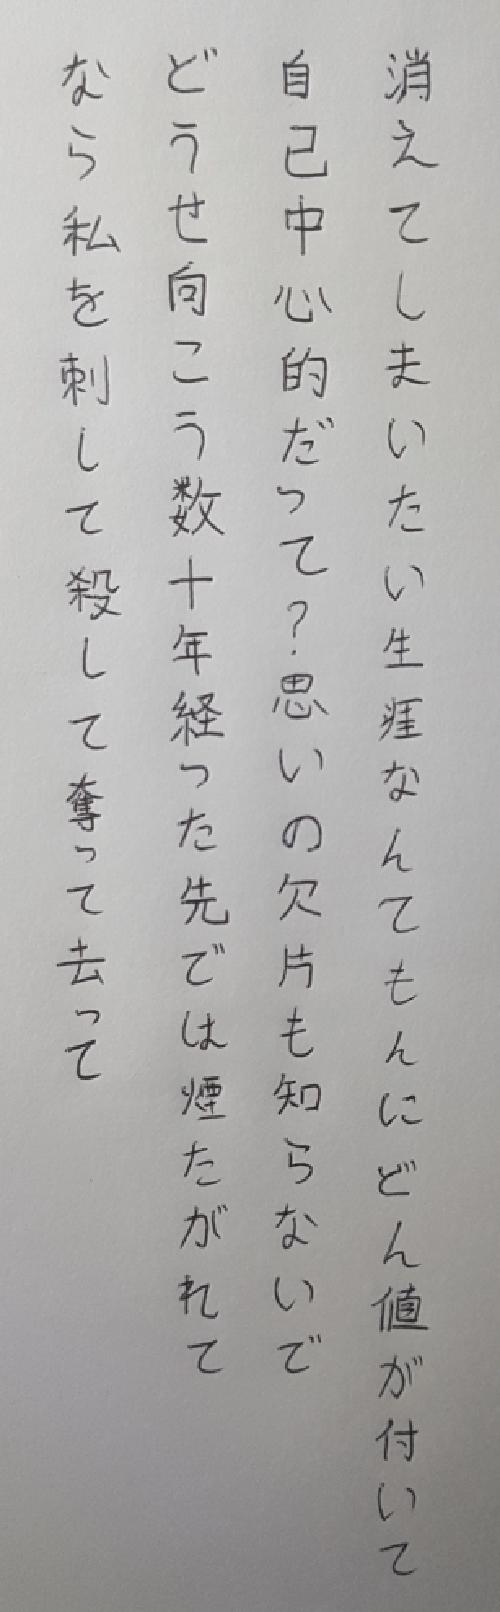 消えてしまいたい生涯なんてもんにどん値が付いて
自己中心的だって？思いの欠片も知らないで
どうせ向こう数十年経った先では煙たがれて
なら私を刺して殺して奪って去って